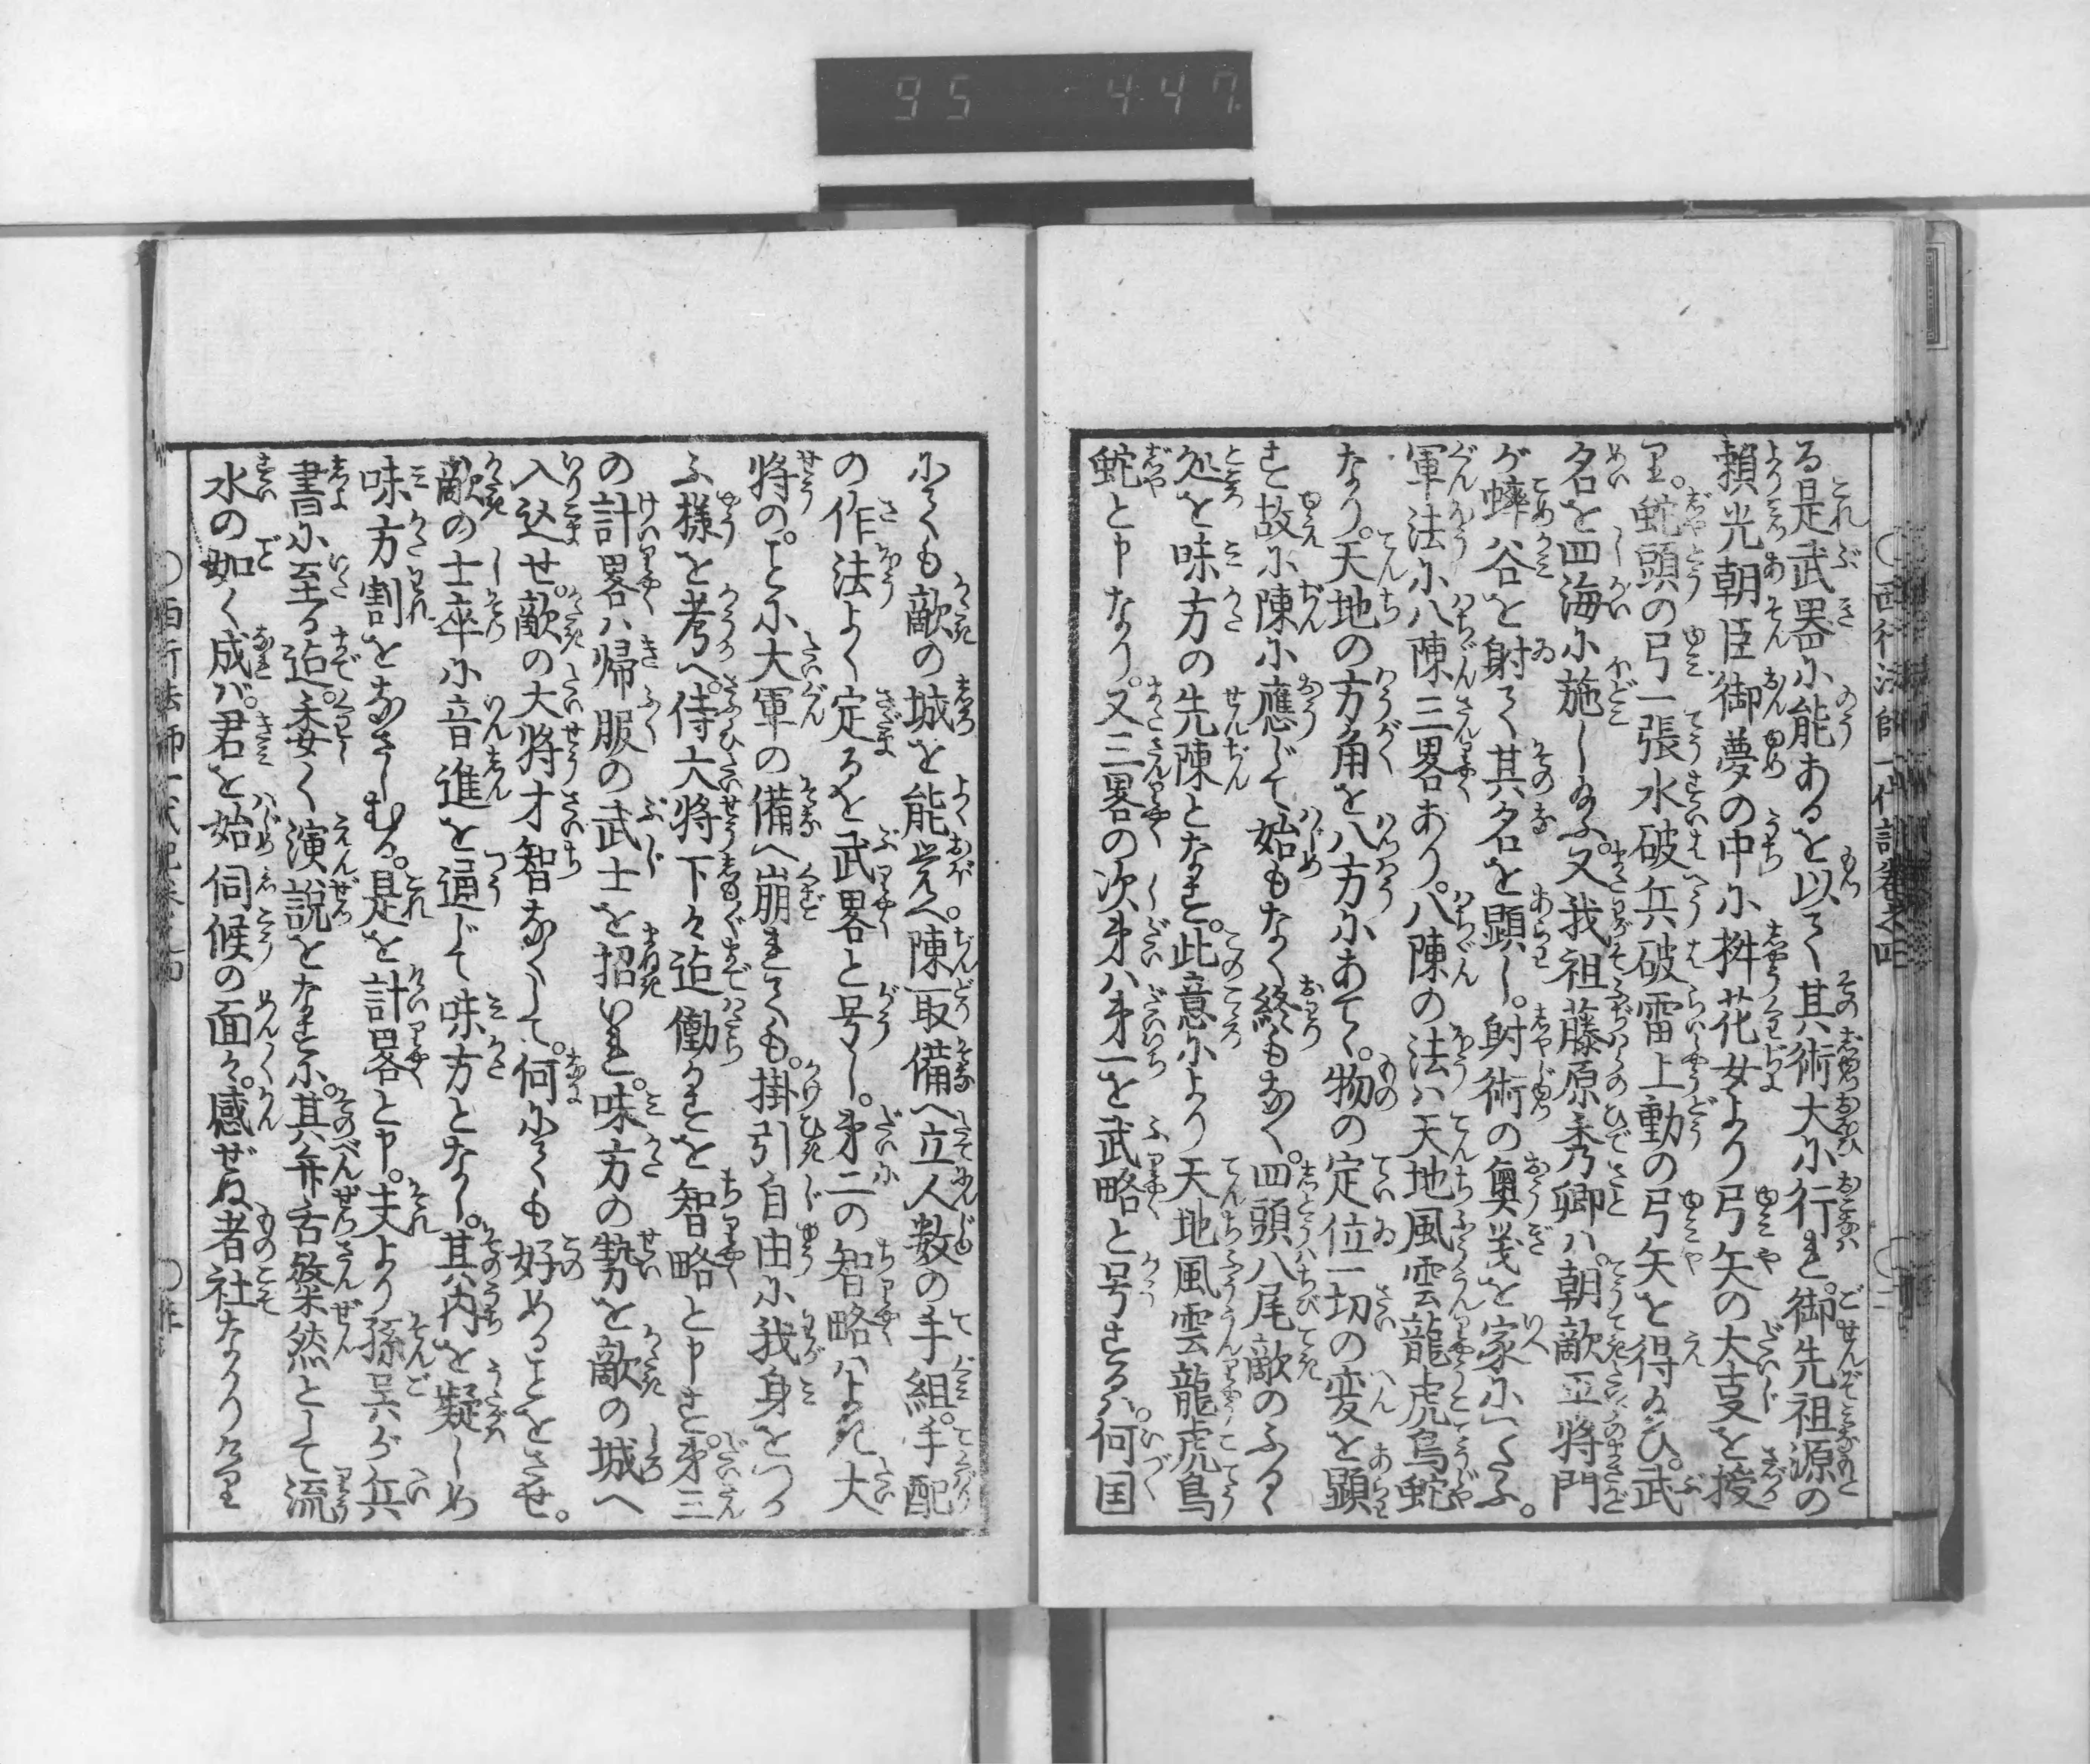 95 447
西行法師一代記巻之四
る是武器に能あるを以て其術大に行れ。御先祖源の
頼光朝臣御夢の中に桝花女より弓矢の大事を授
り。蛇頭の弓一張水破兵破雷上動の弓矢を得ゐひ。武
名を四海に施し給ふ。又我祖藤原秀郷ハ。朝敵平将門
が蟀谷を射て其名を顕し。射術の奥義を家につたふ。
軍法に八陳三畧あり。八陳の法ハ天地風雲龍虎鳥蛇
なり。天地の方角を八方にあて。物の定位一切の変を顕
す故に陳に應じて始もなく終もなく。四頭八尾敵のふるゝ
処を味方の先陳となす。此意により天地風雲龍虎鳥
蛇と申なり。又三畧の次第ハ第一を武略と号するハ。何国
にても敵の城を能覚へ。陳取備へ立人数の手組。手配
の作法よく定るを武畧と号し。第二の智略ハよき大
将の。ことに大軍の備へ崩れても。掛引自由に我身をつか
ふ様を考へ。侍大将下々迄働かすを智略と申す。第三
の計畧ハ帰服の武士を招いれ。味方の勢を敵の城へ
入込せ。敵の大将才智なくして。何にても好めることをさせ。
敵の士卒に音進を通じて味方となし。其内を疑しめ
味方割をなさしむる。是を計畧と申。夫より孫呉が兵
書に至る迄。委く演説をなすに。其弁舌粲然として流
水の如く成バ。君を始伺候の面々。感ぜぬ者社なかりけれ
西行法師一代記巻之四